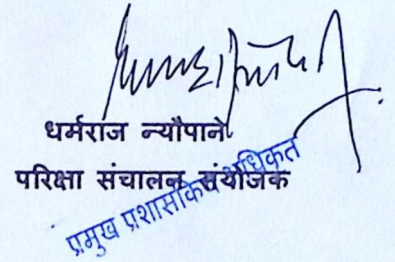 धर्मराज न्यौपाने
परिक्षा संचालन संयोजक
प्रमुख प्रशासकिय अधिकृत